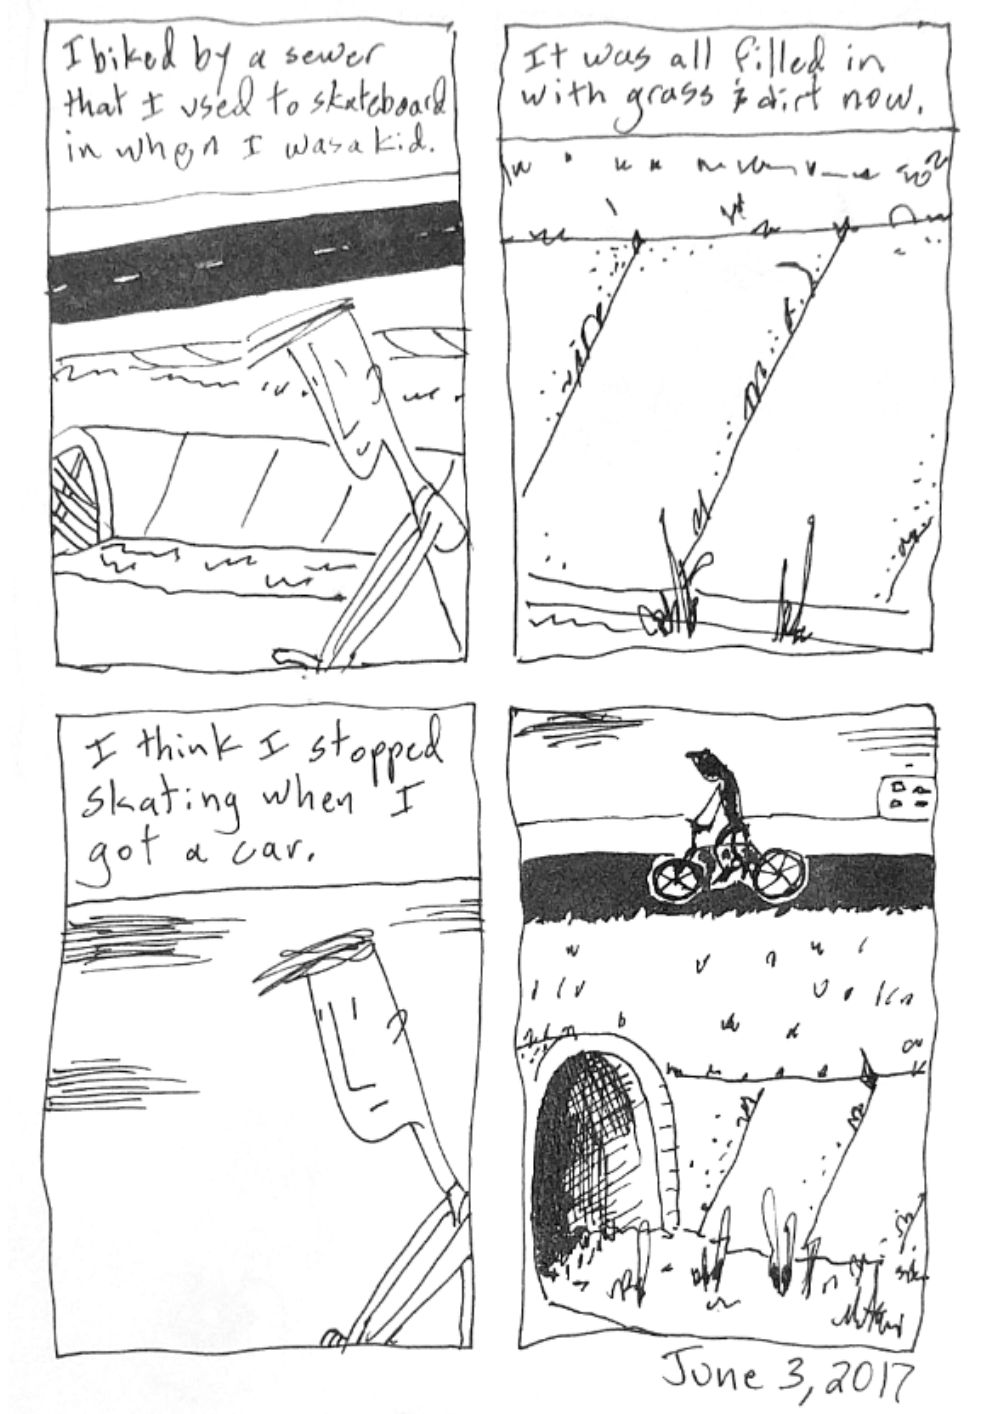 I biked by a sewer
that I used to skateboard
in when I was a kid.
It was all filled in
with grass & dirt now.
I think I stopped
skating when I
got a car.
June 3, 2017